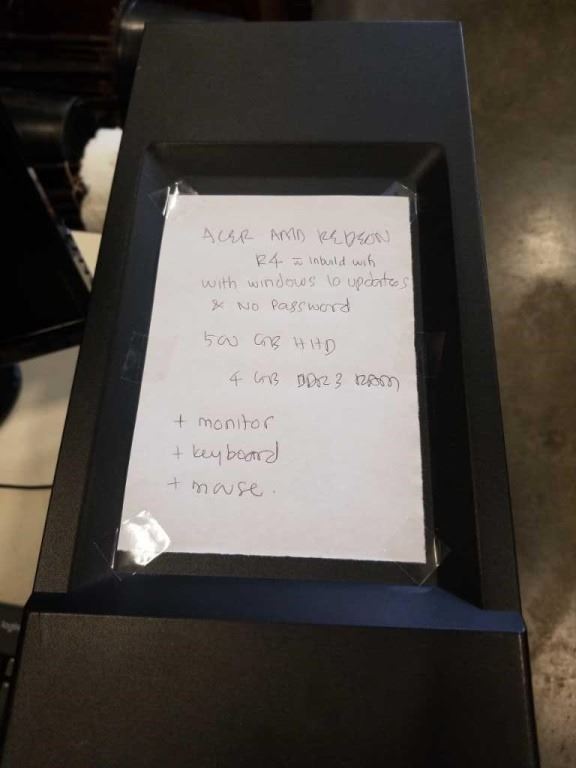 ACER AMD REDEON
R4 = inbuild wifi
with windows 10 updates
& No Password
500 GB HHD
4 GB DDR3 RAM
+ monitor
+ keyboard
+ mouse.